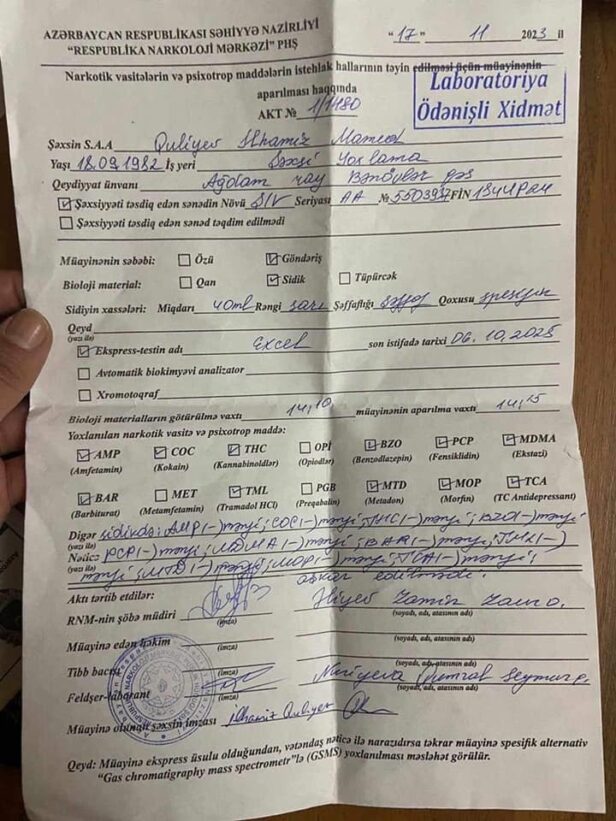 AZƏRBAYCAN RESPUBLİKASI SƏHİYYƏ NAZİRLİYİ
“RESPUBLİKA NARKOLOJİ MƏRKƏZİ” PHŞ
“17” 11 2023 il
Narkotik vasitələrin və psixotrop maddələrin istehlak hallarının təyin edilməsi üçün müayinənin
aparılması haqqında
AKT № 1/1480
Laboratoriya
Ödənişli Xidmət
Şəxsin S.A.A Quliyev İlhamiz Məmməd
Yaşı 18.09.1982 İş yeri Şəxsi Yoxlama
Qeydiyyat ünvanı Ağdam ray
Şəxsiyyəti təsdiq edən sənədin Növü Ş/V Seriyası AA № FİN
Şəxsiyyəti təsdiq edən sənəd təqdim edilmədi
Müayinənin səbəbi: Özü Göndəriş
Bioloji material: Qan Sidik Tüpürcək
Sidiyin xassələri: Miqdarı 40ml Rəngi sarı Şəffaflığı şəffaf Qoxusu spesifik
Qeyd
(yazı ilə)
Ekspress-testin adı Excel son istifadə tarixi 06.10.2025
Avtomatik biokimyəvi analizator
Xromotoqraf
Bioloji materialların götürülmə vaxtı 14,10 müayinənin aparılma vaxtı 14,15
Yoxlanılan narkotik vasitə və psixotrop maddə:
AMP COC THC OPİ BZO PCP MDMA
(Amfetamin) (Kokain) (Kannabinoldlər) (Opiodlər) (Benzodlazepin) (Fensiklidin) (Ekstazi)
BAR MET TML PGB MTD MOP TCA
(Barbiturat) (Metamfetamin) (Tramadol HCl) (Preqabalin) (Metadon) (Morfin) (TC Antidepressant)
Digər sidikdə: AMP(-)mənfi; COC(-)mənfi; THC(-)mənfi; BZO(-)mənfi
(yazı ilə)
Nəticə PCP(-)mənfi; MDMA(-)mənfi; BAR(-)mənfi; TML(-)
(yazı ilə) mənfi; MTD(-)mənfi; MOP(-)mənfi; TCA(-)mənfi;
aşkar edilmədi.
Aktı tərtib etdilər:
RNM-nin şöbə müdiri Əliyev Zamir
(imza) (soyadı, adı, atasının adı)
Müayinə edən həkim
(imza) (soyadı, adı, atasının adı)
Tibb bacısı
(imza) (soyadı, adı, atasının adı)
Feldşer-laborant Nuriyeva
(imza) (soyadı, adı, atasının adı)
Müayinə olunan şəxsin imzası
Qeyd: Müayinə ekspress üsulu olduğundan, vətəndaş nəticə ilə narazıdırsa təkrar müayinə spesifik alternativ
“Gas chromatigraphy mass spectrometr”lə (GSMS) yoxlanılması məsləhət görülür.